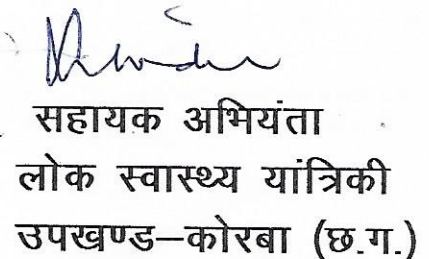 सहायक अभियंता
लोक स्वास्थ्य यांत्रिकी
उपखण्ड–कोरबा (छ.ग.)